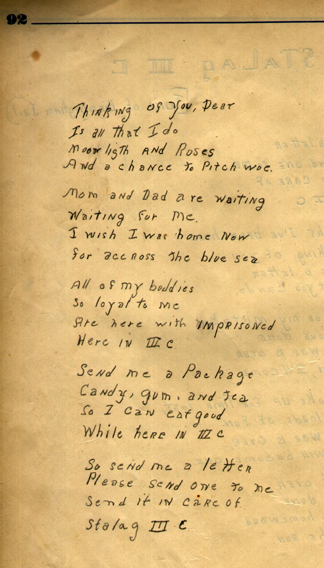 92
Thinking of You, Dear
Is all that I do
Moon ligth and Roses
And a chance to Pitch woe.
Mom and Dad are waiting
Waiting for me.
I wish I was home Now
far accross the blue sea
All of my buddies
So loyal to me
Are here with IMPRISONED
Here in III C
Send me a Package
Candy, gum, and tea
So I can eat good
While here in III C
So send me a letter
Please send one to me
Send it in care of
Stalag III C
STALAG III C